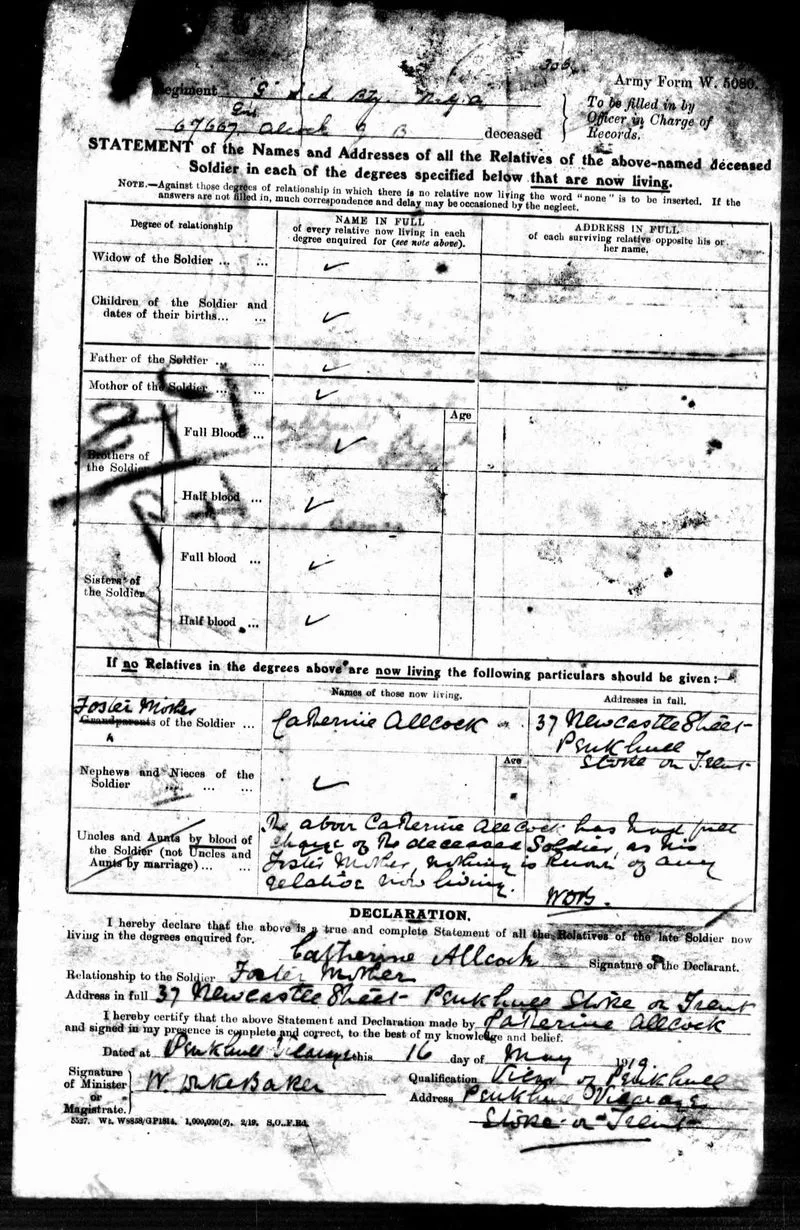 Army Form W. 5080.
Regiment "G" S A Bty. R.G.A.
To be filled in by
Officer in Charge of
Records.
Gnr
67667 Alcock J B deceased
STATEMENT of the Names and Addresses of all the Relatives of the above-named deceased
Soldier in each of the degrees specified below that are now living.
NOTE.—Against those degrees of relationship in which there is no relative now living the word "none" is to be inserted. If the
answers are not filled in, much correspondence and delay may be occasioned by the neglect.
Degree of relationship
NAME IN FULL
of every relative now living in each
degree enquired for (see note above).
ADDRESS IN FULL
of each surviving relative opposite his or
her name.
Widow of the Soldier ... ... ✓
Children of the Soldier and
dates of their births... ... ✓
Father of the Soldier ... ... ✓
Mother of the Soldier ... ... ✓
Age
Brothers of
the Soldier
Full Blood ... ✓
Half blood ... ✓
Sisters of
the Soldier
Full blood ... ✓
Half blood ... ✓
If no Relatives in the degrees above are now living the following particulars should be given:—
Names of those now living.
Addresses in full.
Foster Mother
Grandparents of the Soldier ... Catherine Allcock 37 Newcastle Street
Penkhull
Stoke on Trent
Age
Nephews and Nieces of the
Soldier ... ... ✓
Uncles and Aunts by blood of
the Soldier (not Uncles and
Aunts by marriage) ... ...
The above Catherine Allcock has had full
charge of the deceased Soldier, as his
Foster Mother, nothing is known of any
relative now living.
WDB.
DECLARATION.
I hereby declare that the above is a true and complete Statement of all the Relatives of the late Soldier now
living in the degrees enquired for.
Catherine Allcock Signature of the Declarant.
Relationship to the Soldier Foster Mother
Address in full 37 Newcastle Street Penkhull Stoke on Trent
I hereby certify that the above Statement and Declaration made by Catherine Allcock
and signed in my presence is complete and correct, to the best of my knowledge and belief.
Dated at Penkhull Vicarage this 16 day of May 1919
Signature
of Minister
or
Magistrate.
W. Duke Baker
Qualification Vicar of Penkhull
Address Penkhull Vicarage
Stoke-on-Trent
5527. Wt. W8858/GP1814. 1,000,000(5). 2/19. S.O.,F.Rd.